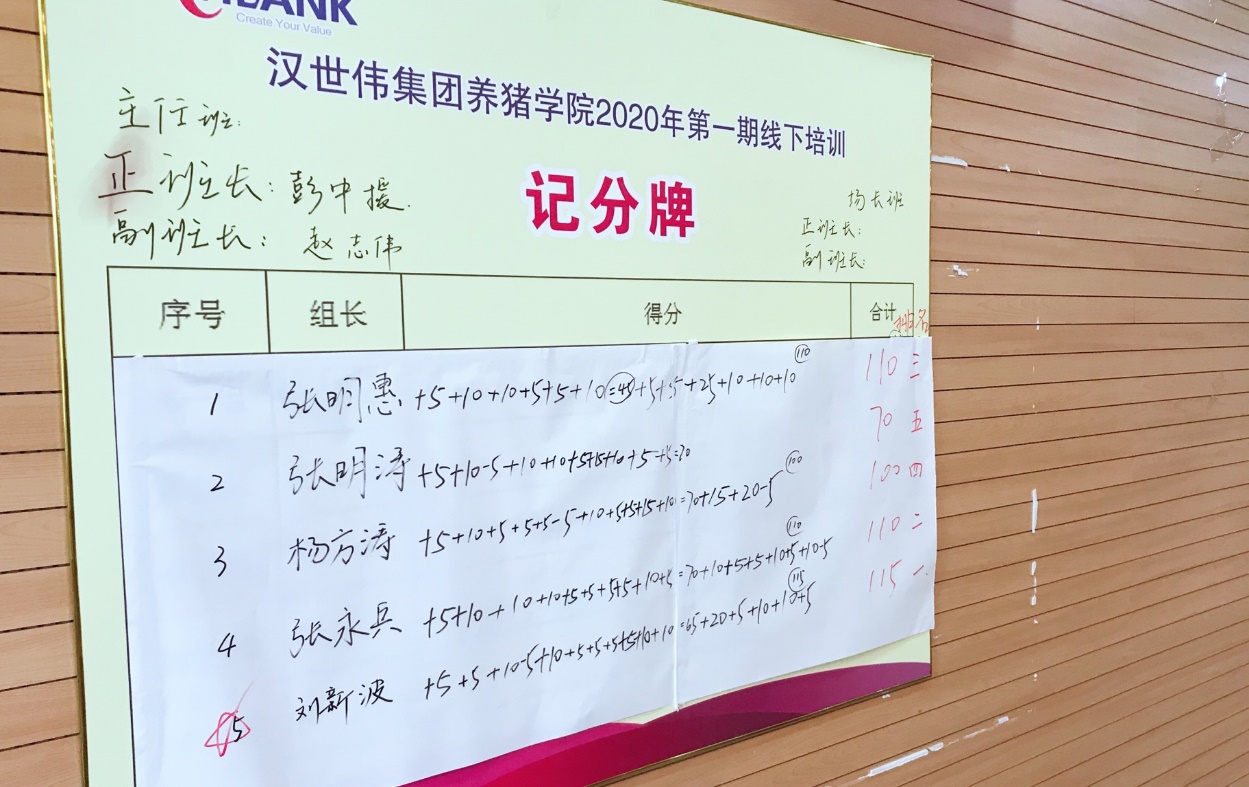 BANK
Create Your Value
汉世伟集团养猪学院2020年第一期线下培训
主任班:
正班长: 彭中援.
副班长: 赵志伟
记分牌
场长班
正班长:
副班长:
序号 组长 得分 合计 排名
1 张明惠 +5+10+10+5+5+10=45+5+5+25+10+10+10 110 110 三
2 张明涛 +5+10-5+10+10+5+15+10+5+5=70 70 五
3 杨方涛 +5+10+5+5+5-5+10+5+5+15+10=70+15+20-5 100 100 四
4 张永兵 +5+10+10+10+5+5+5+5+10+5=70+10+5+5+10+5+10-5 110 110 二
5 刘新波 +5+5+10-5+10+5+5+5+5+10+10=65+20+5+10+10+5 115 115 一